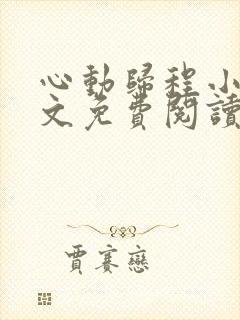 心動歸程小
文免費閱讀
賈賽戀